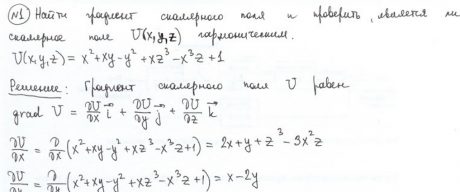 №1 Найти градиент скалярного поля и проверить, является ли
скалярное поле U(x,y,z) гармоническим.
U(x,y,z) = x² + xy - y² + xz³ - x³z + 1
Решение: Градиент скалярного поля U равен
grad U = ∂U/∂x i⃗ + ∂U/∂y j⃗ + ∂U/∂z k⃗
∂U/∂x = ∂/∂x (x² + xy - y² + xz³ - x³z + 1) = 2x + y + z³ - 3x²z
∂U/∂y = ∂/∂y (x² + xy - y² + xz³ - x³z + 1) = x - 2y